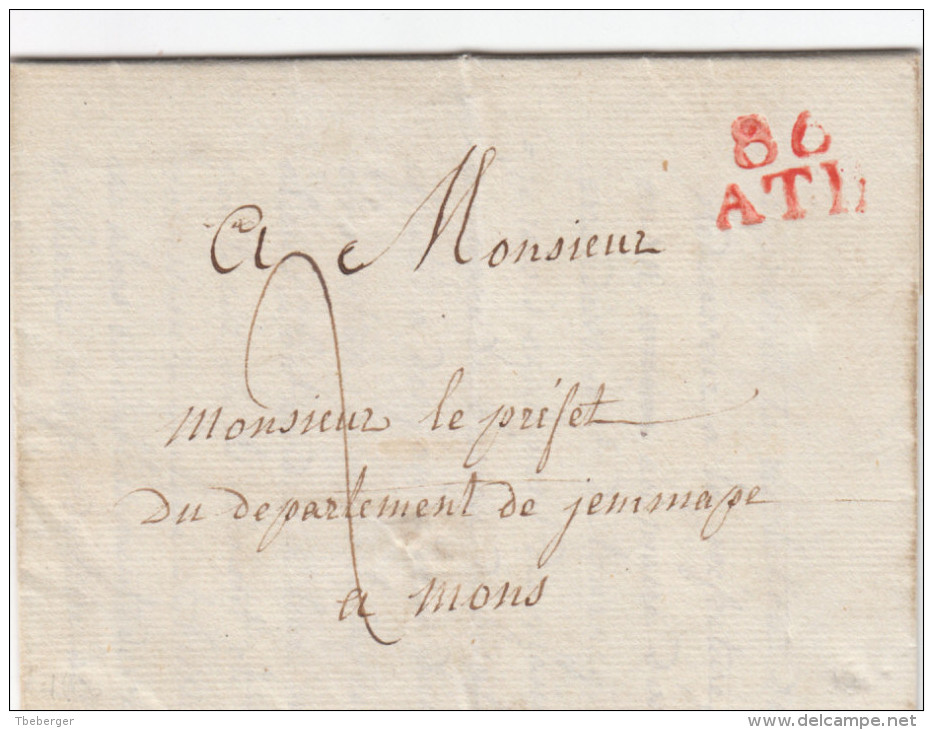 86
ATH
A Monsieur
2
Monsieur le préfet
du departement de jemmape
a mons
Tbeberger
www.delcampe.net